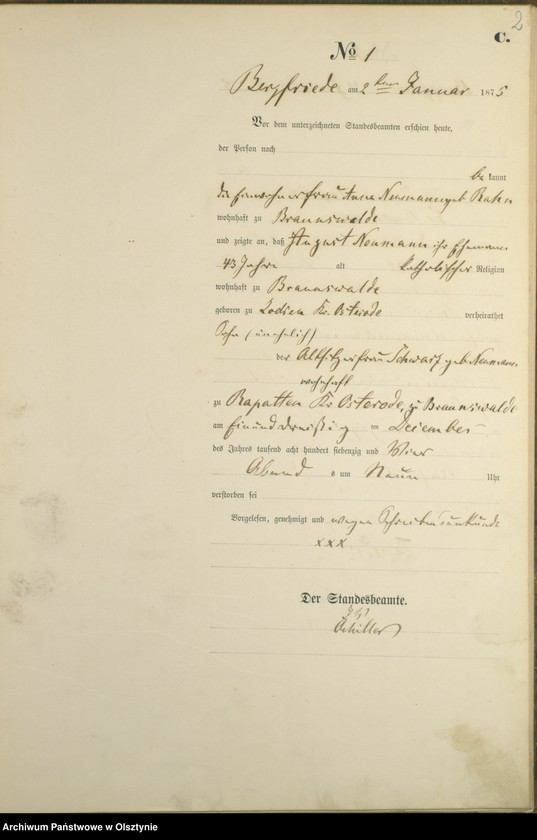 2
C.
No 1
Bergfriede am 2ten Januar 1875
Vor dem unterzeichneten Standesbeamten erschien heute,
der Person nach
bekannt
die Einwohnerfrau Anna Neumann geb Rahn
wohnhaft zu Braunswalde
und zeigte an, daß August Neumann ihr Ehemann
43 Jahre alt katholischer Religion
wohnhaft zu Braunswalde
geboren zu Kr. Osterode verheirathet
Sohn (unehelich)
der Altsitzerfrau Schwarz geb Neumann
wohnhaft
zu Rapatten Kr Osterode, zu Braunswalde
am Einunddreißig ten December
des Jahres tausend acht hundert siebenzig und Vier
Abend s um Neun Uhr
verstorben sei
Vorgelesen, genehmigt und wegen Schreibensunkunde
xxx
Der Standesbeamte.
Schiller
Archiwum Państwowe w Olsztynie